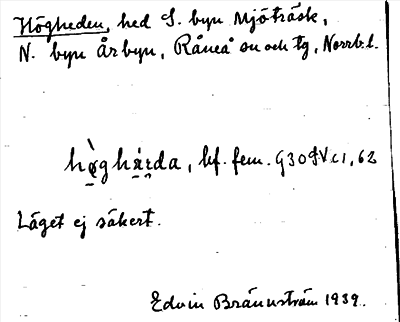 Högheden, hed S. byn Mjöträsk,
N. byn Årbyn, Råneå sn och tg, Norrb. l.
hø̣̀ghạ̈ṛda, bf. fem. G30 f V c1, 62
Läget ej säkert.
Edvin Brännström 1939.